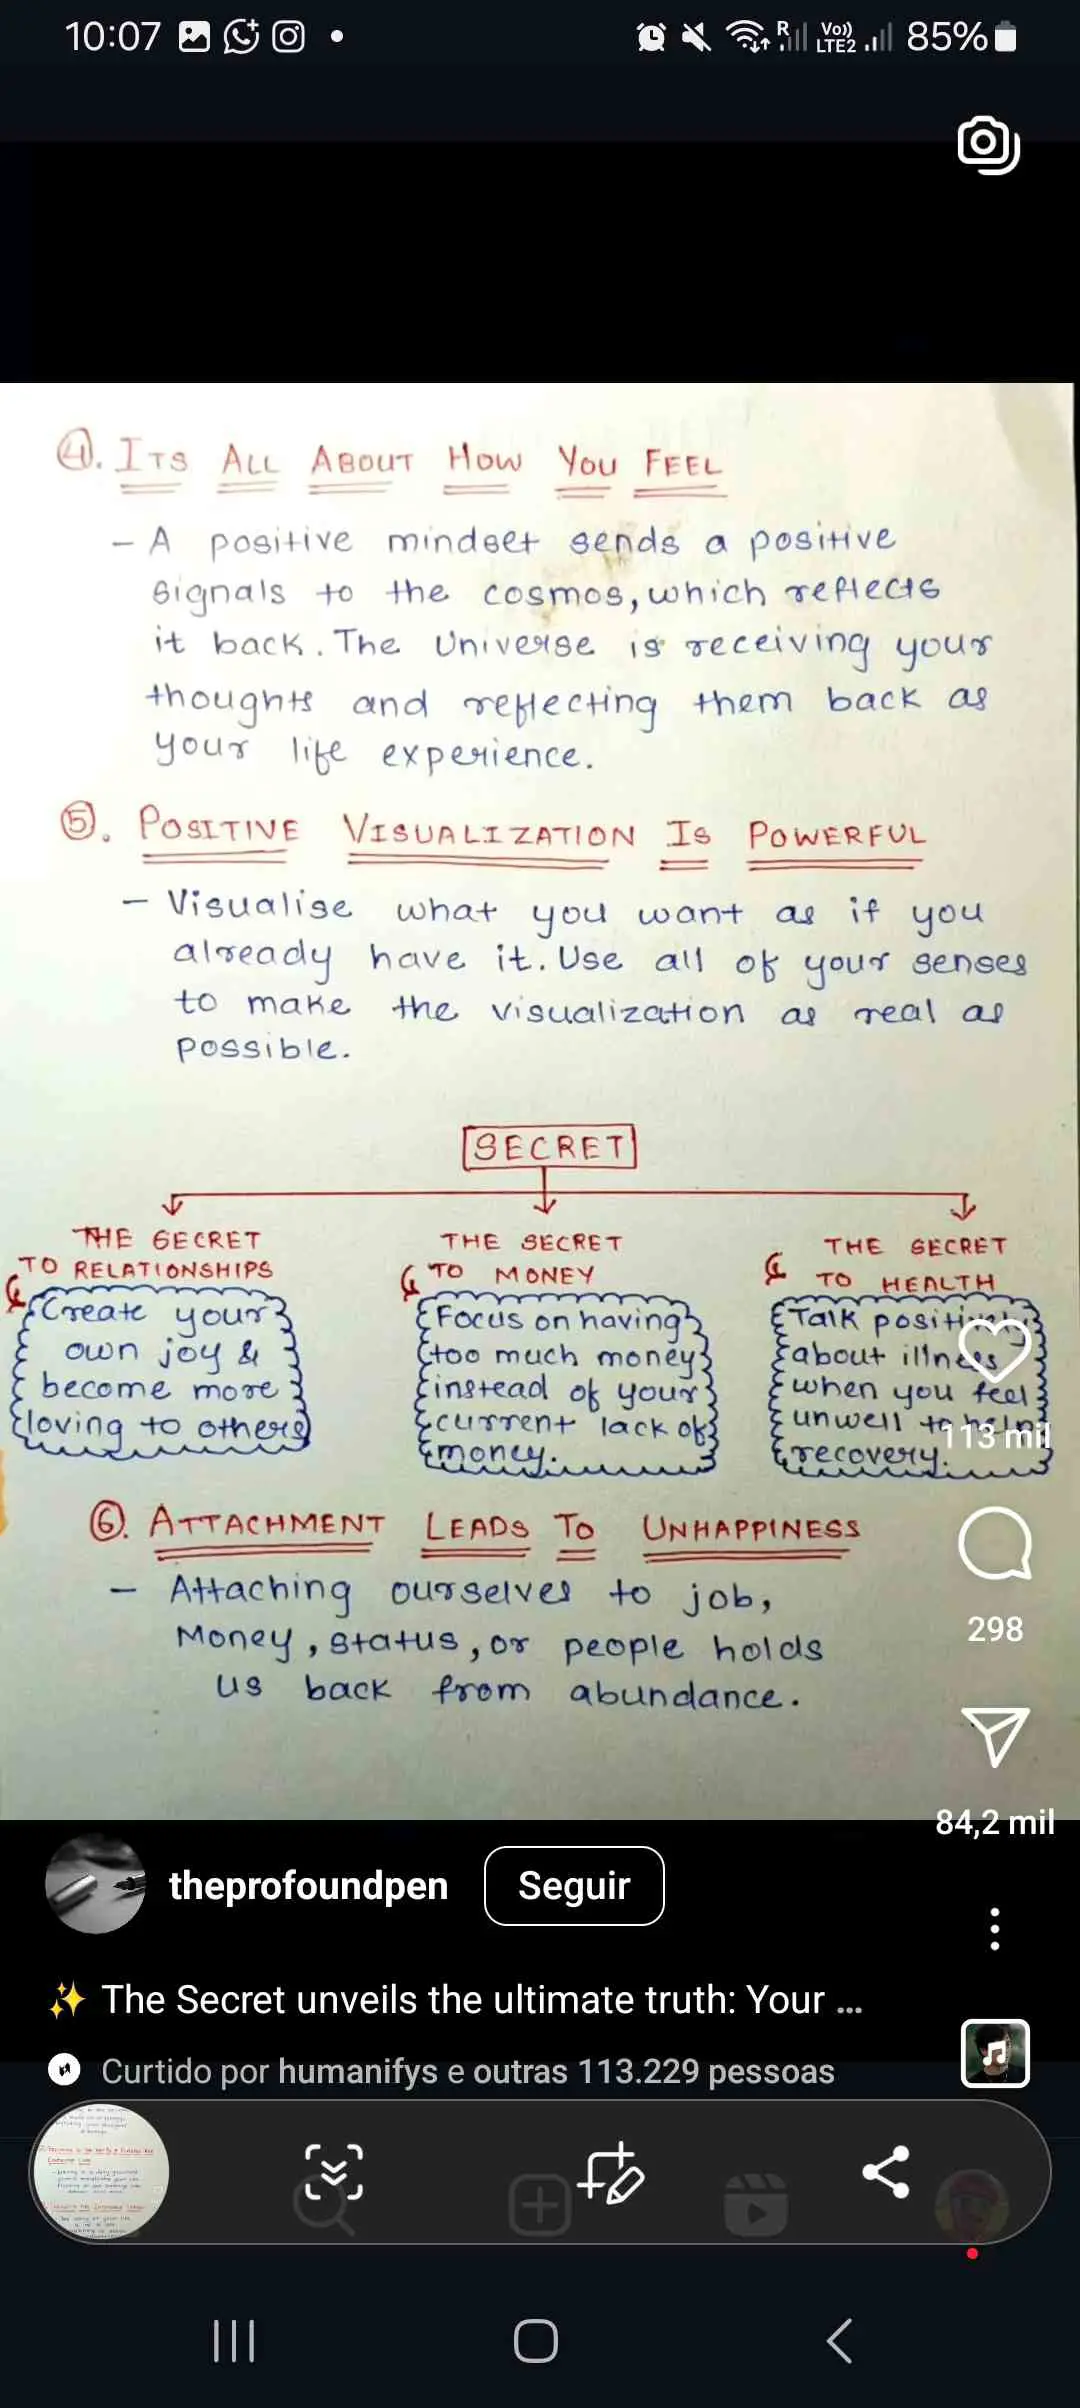 10:07
R
Vo))
LTE2
85%
4. ITS ALL ABOUT HOW YOU FEEL
- A positive mindset sends a positive
signals to the cosmos, which reflects
it back. The Universe is receiving your
thoughts and reflecting them back as
your life experience.
5. POSITIVE VISUALIZATION IS POWERFUL
- Visualise what you want as if you
already have it. Use all of your senses
to make the visualization as real as
possible.
SECRET
THE SECRET
TO RELATIONSHIPS
Create your
own joy &
become more
loving to others
THE SECRET
TO MONEY
Focus on having
too much money
instead of your
current lack of
money.
THE SECRET
TO HEALTH
Talk positively
about illness
when you feel
unwell to help
recovery.
113 mil
6. ATTACHMENT LEADS TO UNHAPPINESS
- Attaching ourselves to job,
Money, status, or people holds
us back from abundance.
298
84,2 mil
theprofoundpen
Seguir
✨ The Secret unveils the ultimate truth: Your ...
Curtido por humanifys e outras 113.229 pessoas